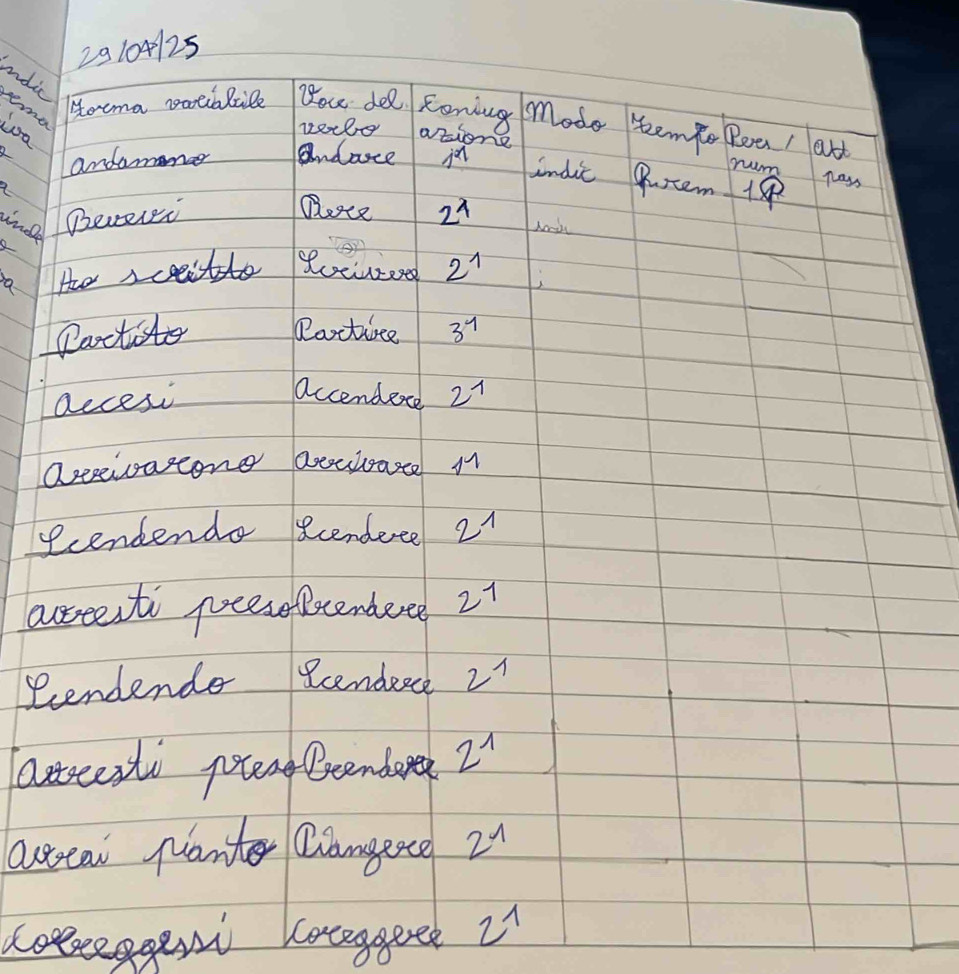 29/04/25
Forma variabile Voce del verbo Coniug azione Modo Tempo Pers/ num att pass
andammo Andare 1ª indic P.rem 1ª P
Beverei Bere 2ª
Ho scritto Scrivere 2ª
Partito Partire 3ª
accesi accendere 2ª
arrivarono arrivare 1ª
Scendendo Scendere 2ª
avresti preso Prendere 2ª
Scendendo Scendere 2ª
avresti preso Prendere 2ª
avrai pianto Piangere 2ª
correggessi Coreggere 2ª